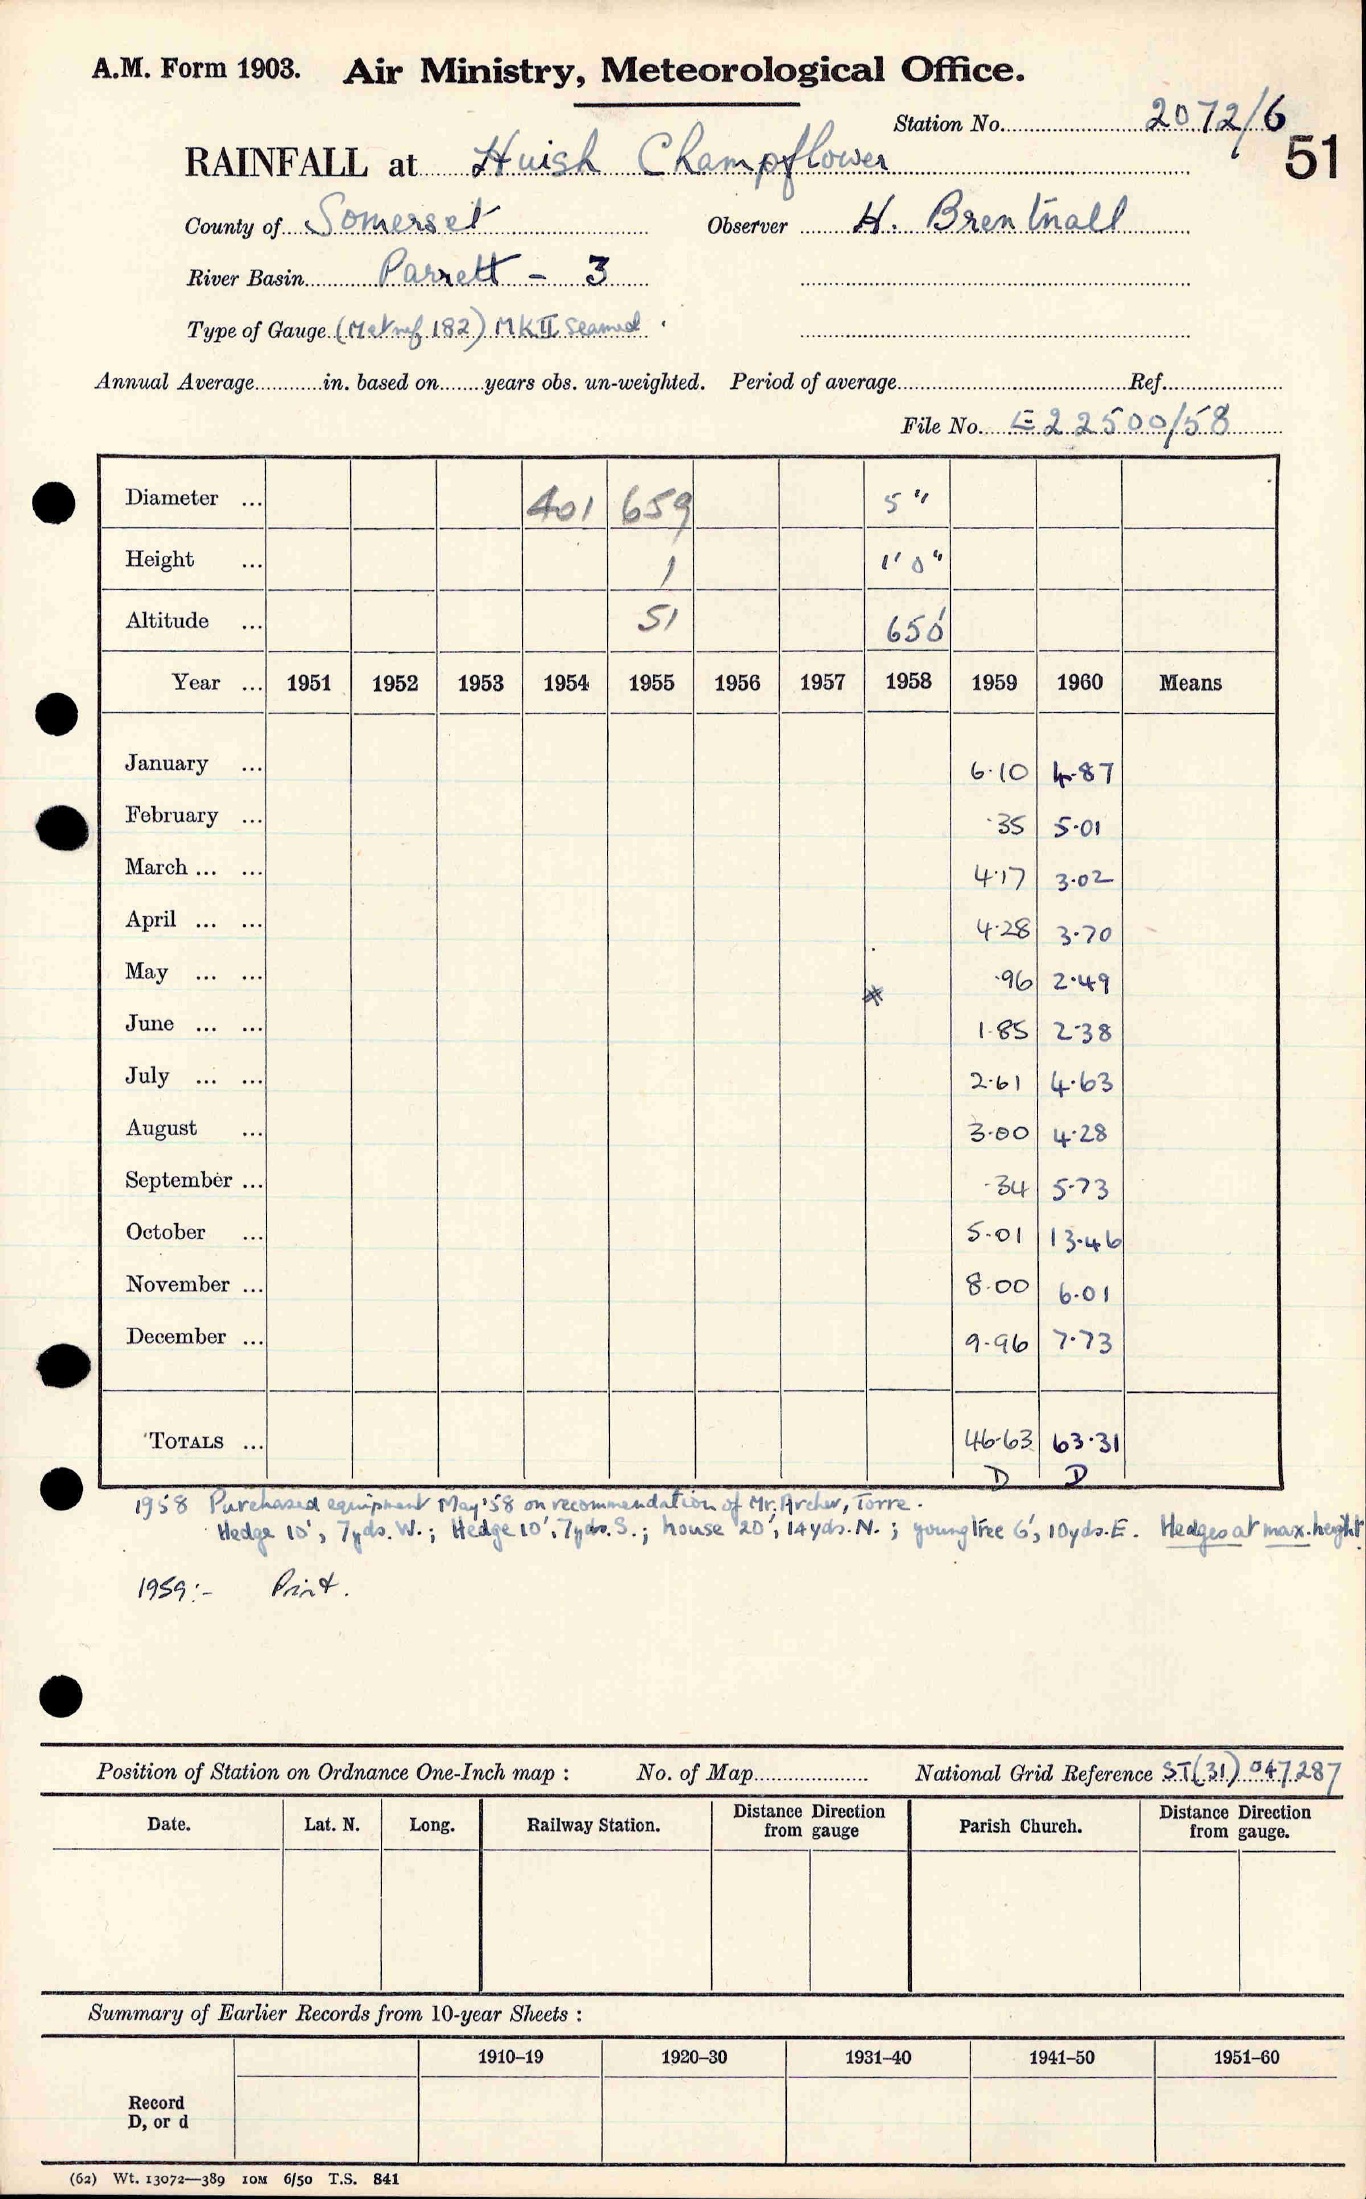 A.M. Form 1903. Air Ministry, Meteorological Office.
Station No. 2072/6
51
RAINFALL at Huish Champflower
County of Somerset Observer H. Brentnall
River Basin Parrett - 3
Type of Gauge (Met ref 182) MK II Seamed
Annual Average in. based on years obs. un-weighted. Period of average Ref.
File No. E22500/58
Diameter ... 401 659 5"
Height ... 1 1' 0"
Altitude ... 51 650'
Year ... 1951 1952 1953 1954 1955 1956 1957 1958 1959 1960 Means
January ... 6.10 4.87
February ... .35 5.01
March ... ... 4.17 3.02
April ... ... 4.28 3.70
May ... ... .96 2.49
June ... ... 1.85 2.38
July ... ... 2.61 4.63
August ... 3.00 4.28
September ... .34 5.73
October ... 5.01 13.46
November ... 8.00 6.01
December ... 9.96 7.73
TOTALS ... 46.63 63.31
D D
1958 Purchased equipment May '58 on recommendation of Mr. Archer, Torre.
Hedge 10', 7yds. W.; Hedge 10', 7yds. S.; house 20', 14yds. N.; young tree 6', 10yds. E. Hedges at max. height.
1959:- Print.
Position of Station on Ordnance One-Inch map : No. of Map National Grid Reference ST(31) 047287
Date. Lat. N. Long. Railway Station. Distance Direction from gauge Parish Church. Distance Direction from gauge.
Summary of Earlier Records from 10-year Sheets :
1910–19 1920–30 1931–40 1941–50 1951–60
Record
D, or d
(62) Wt. 13072—389 10M 6/50 T.S. 841